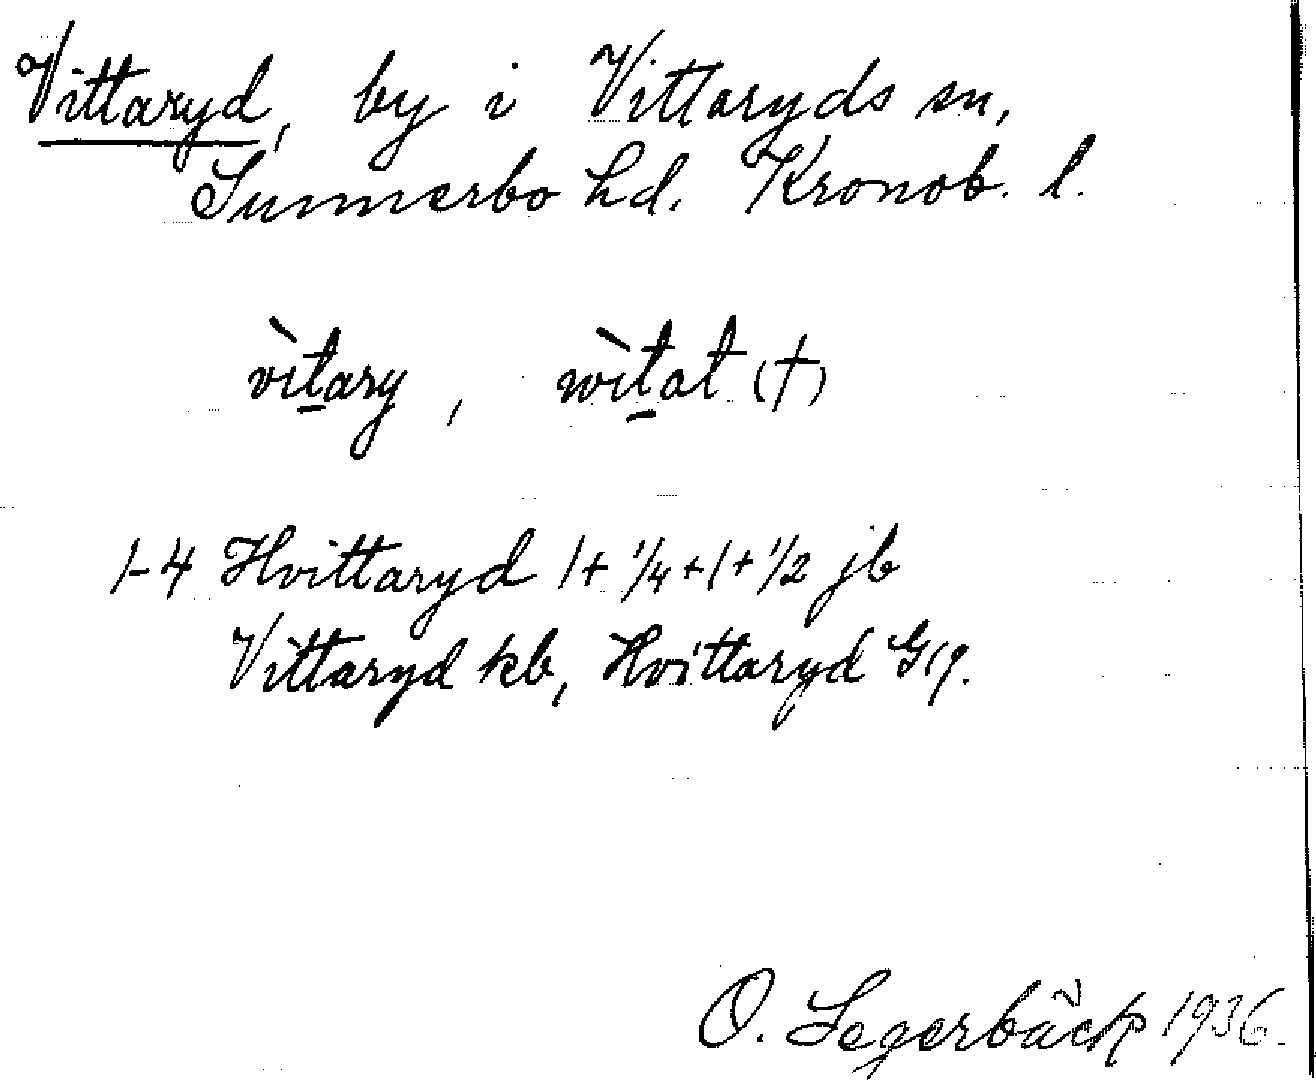 Vittaryd, by i Vittaryds sn,
Sunnerbo hd. Kronob. l.
vìt̲ary, wìt̲at (†)
1-4 Hvittaryd 1+1/4+1+1/2 jb
Vittaryd kb, Hvittaryd G19.
O. Segerbäck 1936.